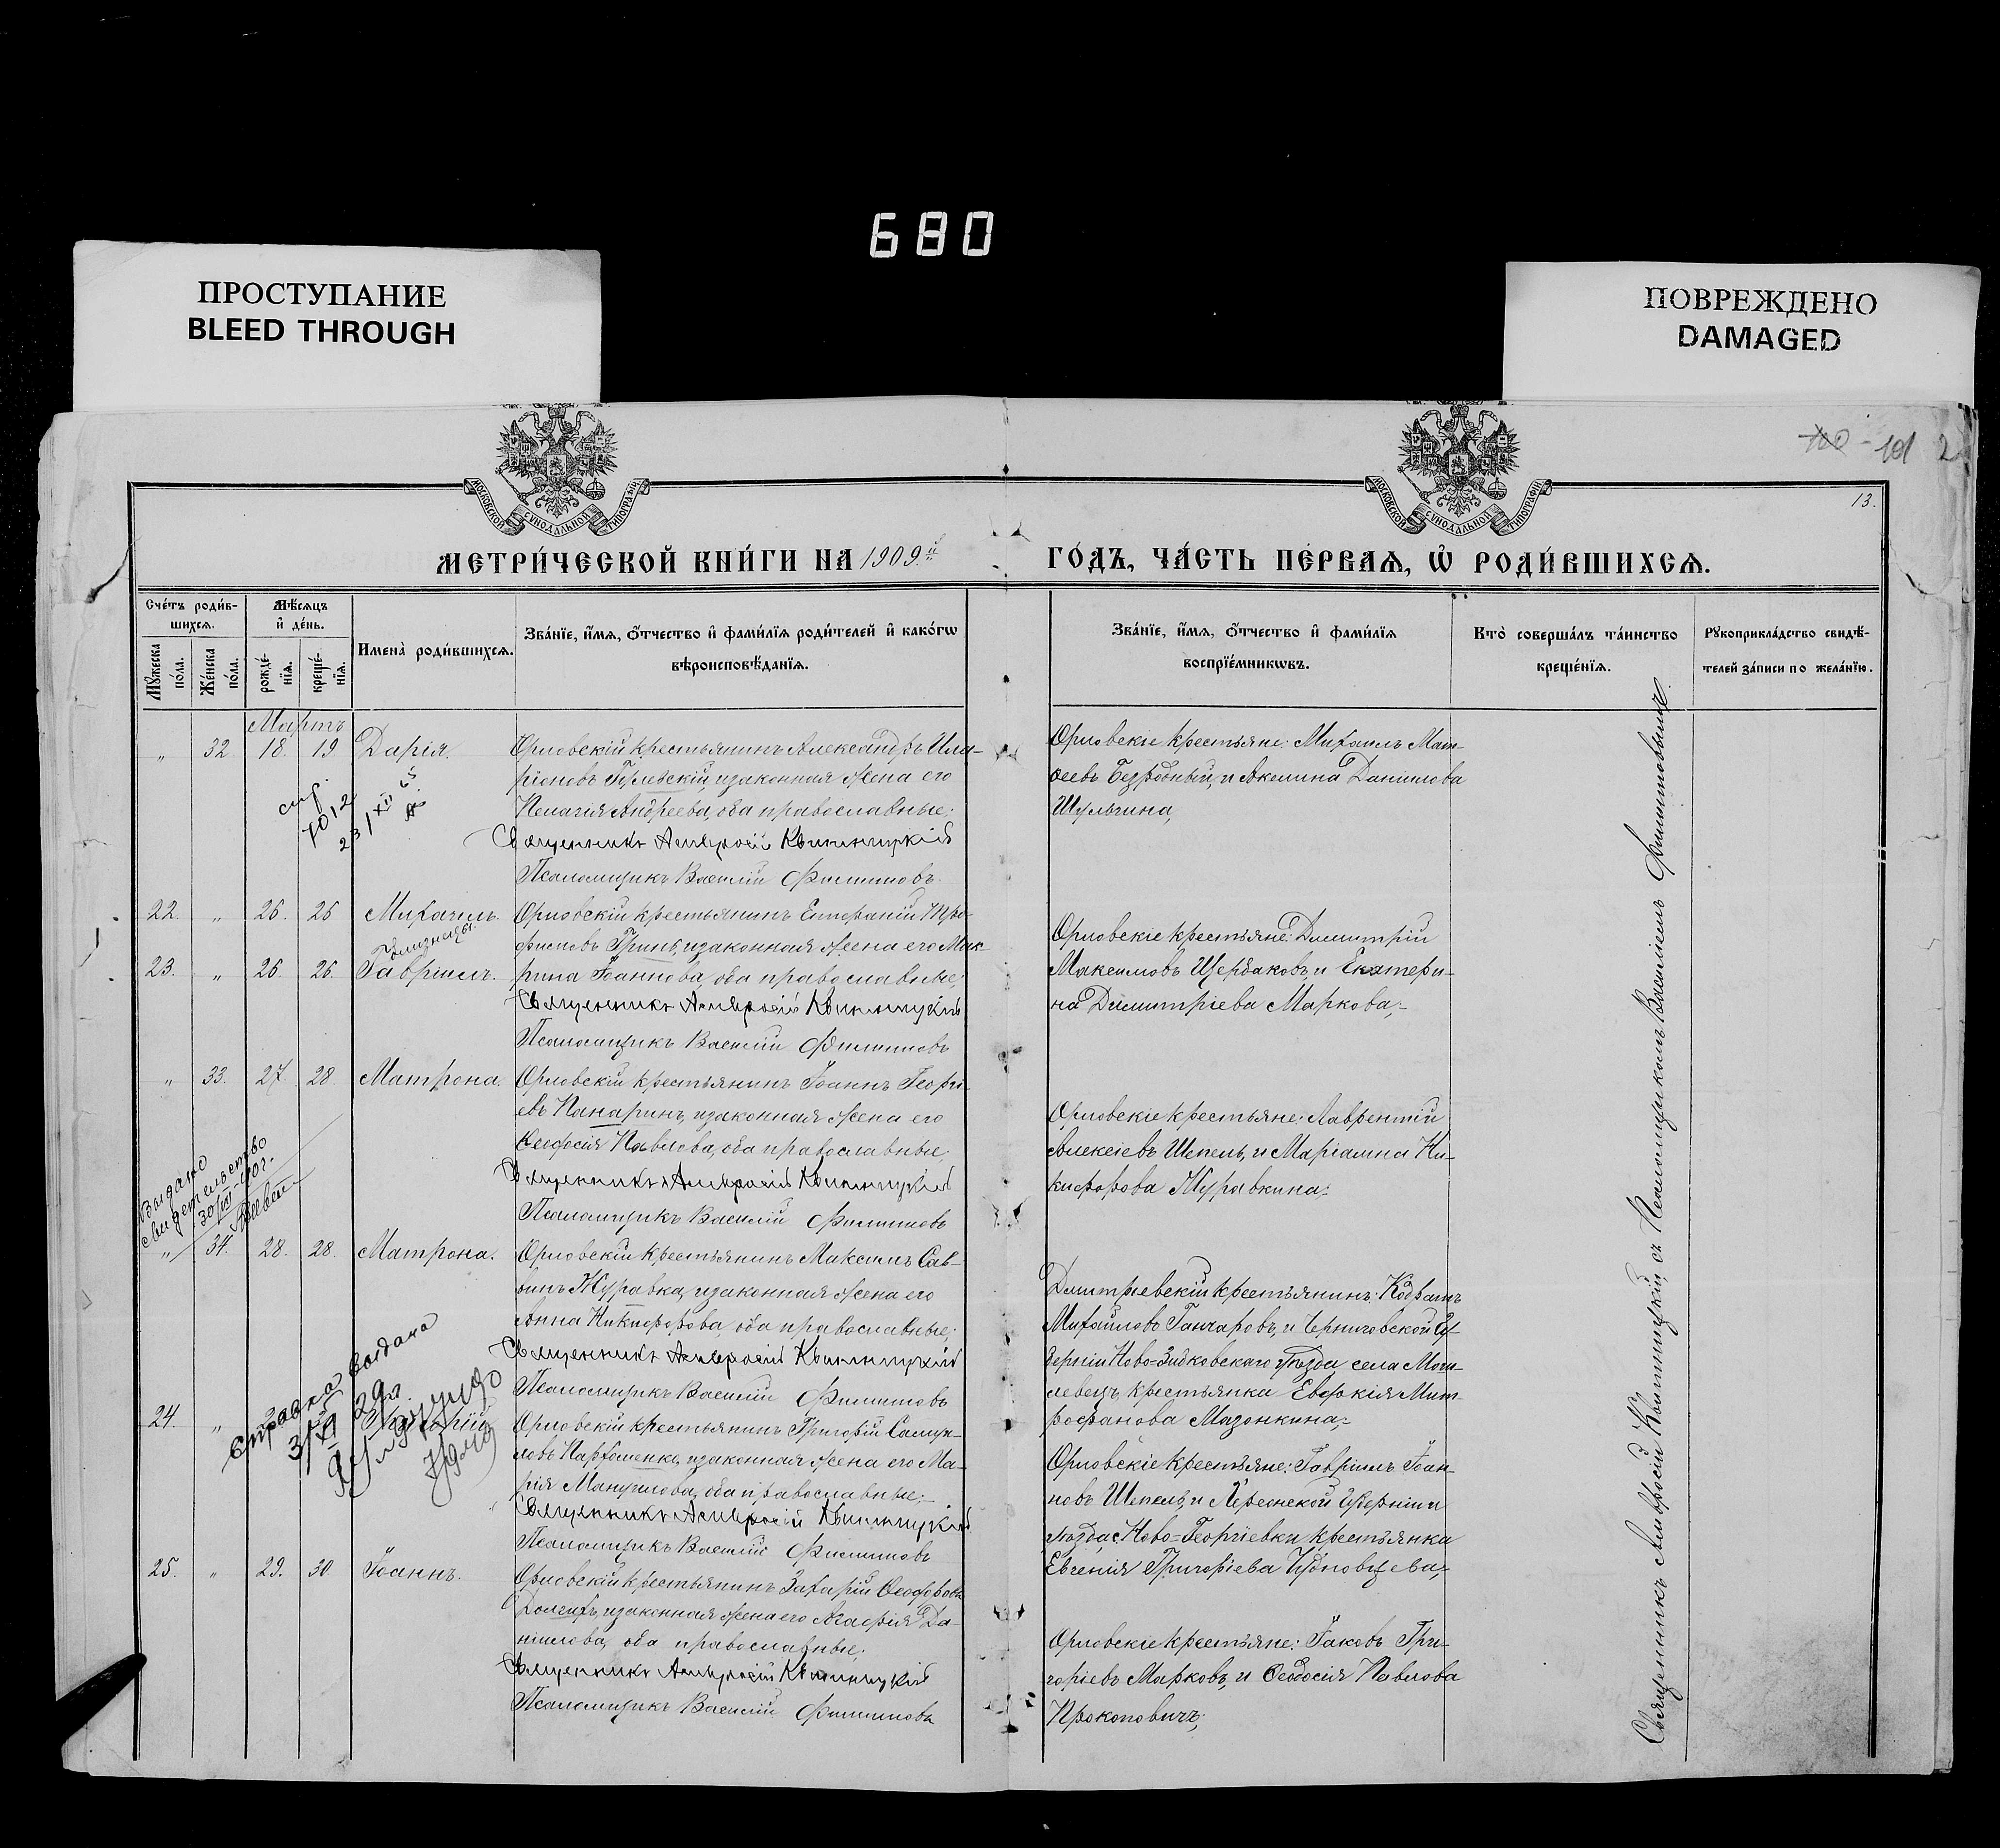 680
ПРОСТУПАНИЕ
BLEED THROUGH
ПОВРЕЖДЕНО
DAMAGED
101 2
13.
МОСКОВСКОЙ СѴНОДАЛЬНОЙ ТИПОГРАФІИ
МОСКОВСКОЙ СѴНОДАЛЬНОЙ ТИПОГРАФІИ
МЕТРИ́ЧЕСКОЙ КНИ́ГИ НА 1909 й
ГО́ДЪ, ЧА́СТЬ ПЕ́РВАѦ, Ѡ҆ РОДИ́ВШИХСѦ.
Сче́тъ роди́в-
шихсѧ.
Мꙋ́жеска по́ла.
Же́нска по́ла.
Мѣ́сѧцъ
и҆ де́нь.
рожде́-нїѧ.
креще́-нїѧ.
Имена̀ роди́вшихсѧ.
Зва́нїе, и҆́мѧ, ѻ҆́тчество и҆ фами́лїѧ роди́телей и҆ како́гѡ
вѣроисповѣ́данїѧ.
Зва́нїе, и҆́мѧ, ѻ҆́тчество и҆ фами́лїѧ
воспрїе́мникѡвъ.
Кто̀ соверша́лъ та́инство
креще́нїѧ.
Рꙋкоприкла́дство свидѣ́-
телей за́писи по жела́нїю.
Мартъ
" 32 18. 19 Дарія.
Орловскій крестьянинъ Александръ Ила-
ріоновъ, изаконная жена его
Пелагія Андреева, оба православные;
Священникъ Амвросій Квитницкій
Псаломщикъ Василій Филипповъ.
Орловскіе крестьяне: Михаилъ Мат-
ѳеевъ Безродный, и Акелина Данилова
Шульгина,
спр.
7012
23/XII
22. " 26. 26 Михаилъ.
близнецы
23. " 26. 26. Гавріилъ.
Орловскій крестьянинъ Епифаній Тро-
фимовъ Гринь, изаконная жена его Мак-
рина Іоаннова, оба православные;
Священникъ Амвросій Квитницкій
Псаломщикъ Василій Филипповъ
Орловскіе крестьяне: Димитрій
Максимовъ Щербаковъ, и Екатери-
на Димитріева Маркова;
" 33. 27 28. Матрона.
Орловскій крестьянинъ Іоаннъ Георгі-
евъ Панаринъ, изаконная жена его
Павлова, оба православные,
Священникъ Амвросій Квитницкій
Псаломщикъ Василій Филипповъ
Орловскіе крестьяне: Лаврентій
Алексіевъ Шепель, и Маріамна Ни-
кифорова Журавкина;
Выдано
свидетельство
" 34. 28. 28. Матрона.
Орловскій крестьянинъ Максимъ Сав-
винъ Журавка, изаконная жена его
Анна Никифорова, оба православные;
Священникъ Амвросій Квитницкій
Псаломщикъ Василій Филипповъ
Дмитріевскій крестьянинъ: Кодратъ
Михайловъ Ганчаровъ, и Черниговской Гу-
берніи Ново-Зибковскаго уѣзда села Моги-
левецъ, крестьянка Евдокія Мит-
рофанова Мазонкина;
Справка выдана
3/VI 29г.
24. "
Орловскій крестьянинъ Григорій Самуи-
ловъ Пархоменко, изаконная жена его Ма-
рія Мануилова, оба православные;
Священникъ Амвросій Квитницкій
Псаломщикъ Василій Филипповъ
Орловскіе крестьяне: Гавріилъ Іоан-
новъ Шепель, и Херсонской Губерніи и
уѣзда с. Ново-Георгіевки крестьянка
Евгенія Григоріева
25. " 29. 30 Іоаннъ.
Орловскій крестьянинъ Захарій Ѳеодоровъ
Долгихъ, изаконная жена его Агафія Да-
ніилова, оба православные;
Священникъ Амвросій Квитницкій
Псаломщикъ Василій Филипповъ
Орловскіе крестьяне: Іаковъ Гри-
горіевъ Марковъ, и Ѳеодосія Павлова
Прокоповичъ;
Священникъ Амвросій Квитницкій, съ Псаломщикомъ Василіемъ Филипповымъ.